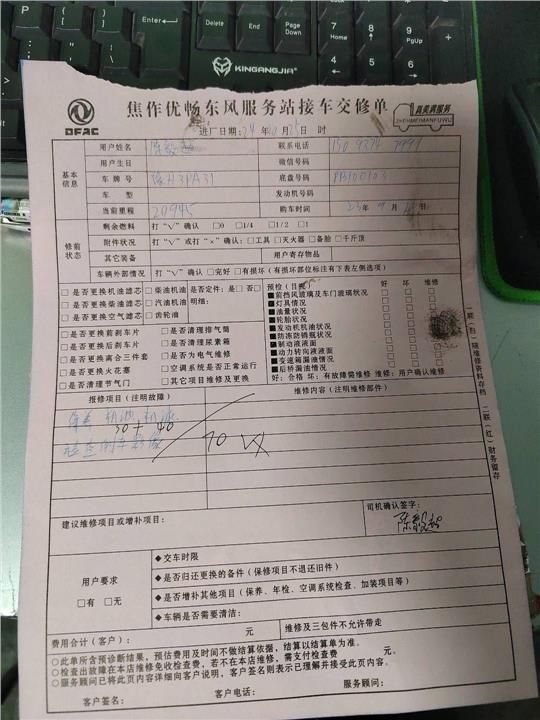 Enter
End
Page Down
7 Home
8
4
5
1 End
2
KINGANGJIA
DFAC
焦作优畅东风服务站接车交修单
真美满服务
ZHENMEIMANFUWU
进厂日期: 24 年 10 月 25 日 时
基本信息
用户姓名 联系电话
用户生日 微信号码
车牌号 豫H3PA31 底盘号码 PB100103
车型 发动机号码
当前里程 20945 购车时间 23年 9月 日
修前状态
剩余燃料 打“√”确认 □0 □1/4 □1/2 □1
附件状况 打“√”或打“×”确认: □工具 □灭火器 □备胎 □千斤顶
其它装备 用户寄存物品
车辆外部情况 打“√”确认 □完好 □有损坏(有损坏部位标注有下表左侧选项)
□是否更换机油滤芯 □柴油机油 是否定件: 是□ 否□
□是否更换柴油滤芯 □汽油机油 明细:
□是否更换空气滤芯 □齿轮油
□是否更换前刹车片 □是否清理排气筒
□是否更换后刹车片 □是否清理尿素箱
□是否更换离合三件套 □是否为电气维修
□是否更换火花塞 □空调系统是否正常运行
□是否清理节气门 □其它项目维修及更换
预检(目测) 好 坏 维修
■前挡风玻璃及车门玻璃状况 □ □ □
■灯具情况 □ □ □
■油量状况 □ □ □
■轮胎状况 □ □ □
■发动机机油状况 □ □
■防冻防锈瓶状况 □ □
■制动液液面 □ □
■动力转向液液面 □ □
■变速箱漏油情况 □ □ □
■后桥漏油情况 □ □ □
好: 合格 坏: 有故障需维修 维修: 用户确认维修
报修项目(注明故障) 维修内容(注明维修部件)
保养 机油 机滤
30+40
检查倒车影像
70 VX
建议维修项目或增补项目:
司机确认签字:
用户要求
□有 □无
◆交车时限
◆是否归还更换的备件(保修项目不退还旧件)
◆是否增补其他项目(保养、年检、空调系统检查、加装项目等)
◆车辆是否需要清洁:
费用合计(客户): 元 维修及三包件不允许带走
○此单所含预诊断结果,预估费用及时间不做结算依据,结算以结算单为准。
○检查出故障在本店维修免收检查费,若不在本店维修,需支付检查费 元。
○服务顾问已将此页内容详细向客户说明,客户签名则表示已理解并接受此页内容。
客户签名: 客户电话: 服务顾问:
一联(白)随维修资料存档 二联(红)财务留存